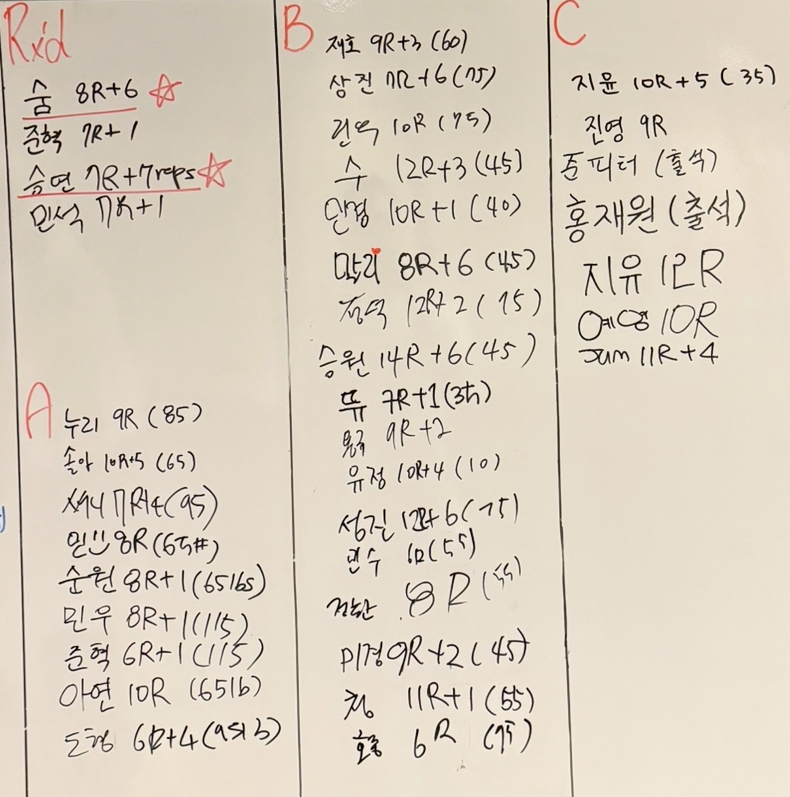 Rx'd
숨 8R+6
준혁 7R+1
승연 7R+7reps
민석 7R+1
A
누리 9R (85)
솔아 10R+5 (65)
7R+4 (95)
민 8R (65#)
순원 8R+1 (65lbs)
민우 8R+1 (115)
준혁 6R+1 (115)
아연 10R (65lb)
도형 6R+4 (95lb)
B
재호 9R+3 (60)
상진 7R+6 (75)
10R (75)
수 12R+3 (45)
민경 10R+1 (40)
8R+6 (45)
12R+2 (75)
승원 14R+6 (45)
쀼 7R+1 (35)
9R+2
유정 10R+4 (10)
성진 12R+6 (75)
민수 (55)
8R (55)
미경 9R+2 (45)
청 11R+1 (55)
6R (75)
C
지윤 10R+5 (35)
진영 9R
준피터 (출석)
홍재원 (출석)
지유 12R
예영 10R
Jum 11R+4